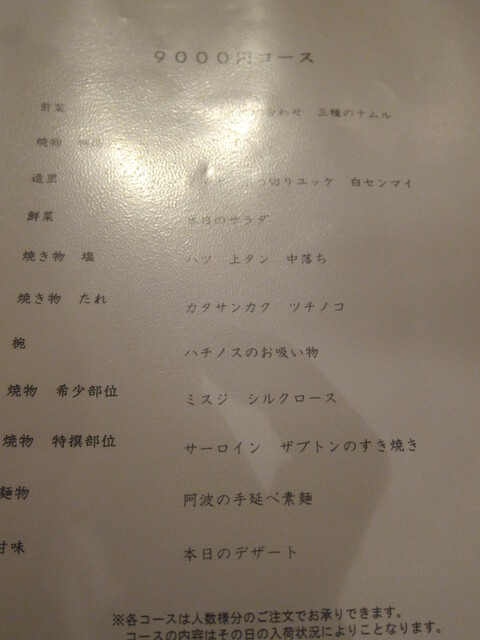 ９０００円コース
前菜 合わせ 三種のナムル
焼物
造里 切りユッケ 白センマイ
鮮菜 のサラダ
焼き物 塩 ハツ 上タン 中落ち
焼き物 たれ カタサンカク ツチノコ
椀 ハチノスのお吸い物
焼物 希少部位 ミスジ シルクロース
焼物 特撰部位 サーロイン ザブトンのすき焼き
麺物 阿波の手延べ素麺
甘味 本日のデザート
※各コースは人数様分のご注文でお承りできます。
コースの内容はその日の入荷状況によりことなります。